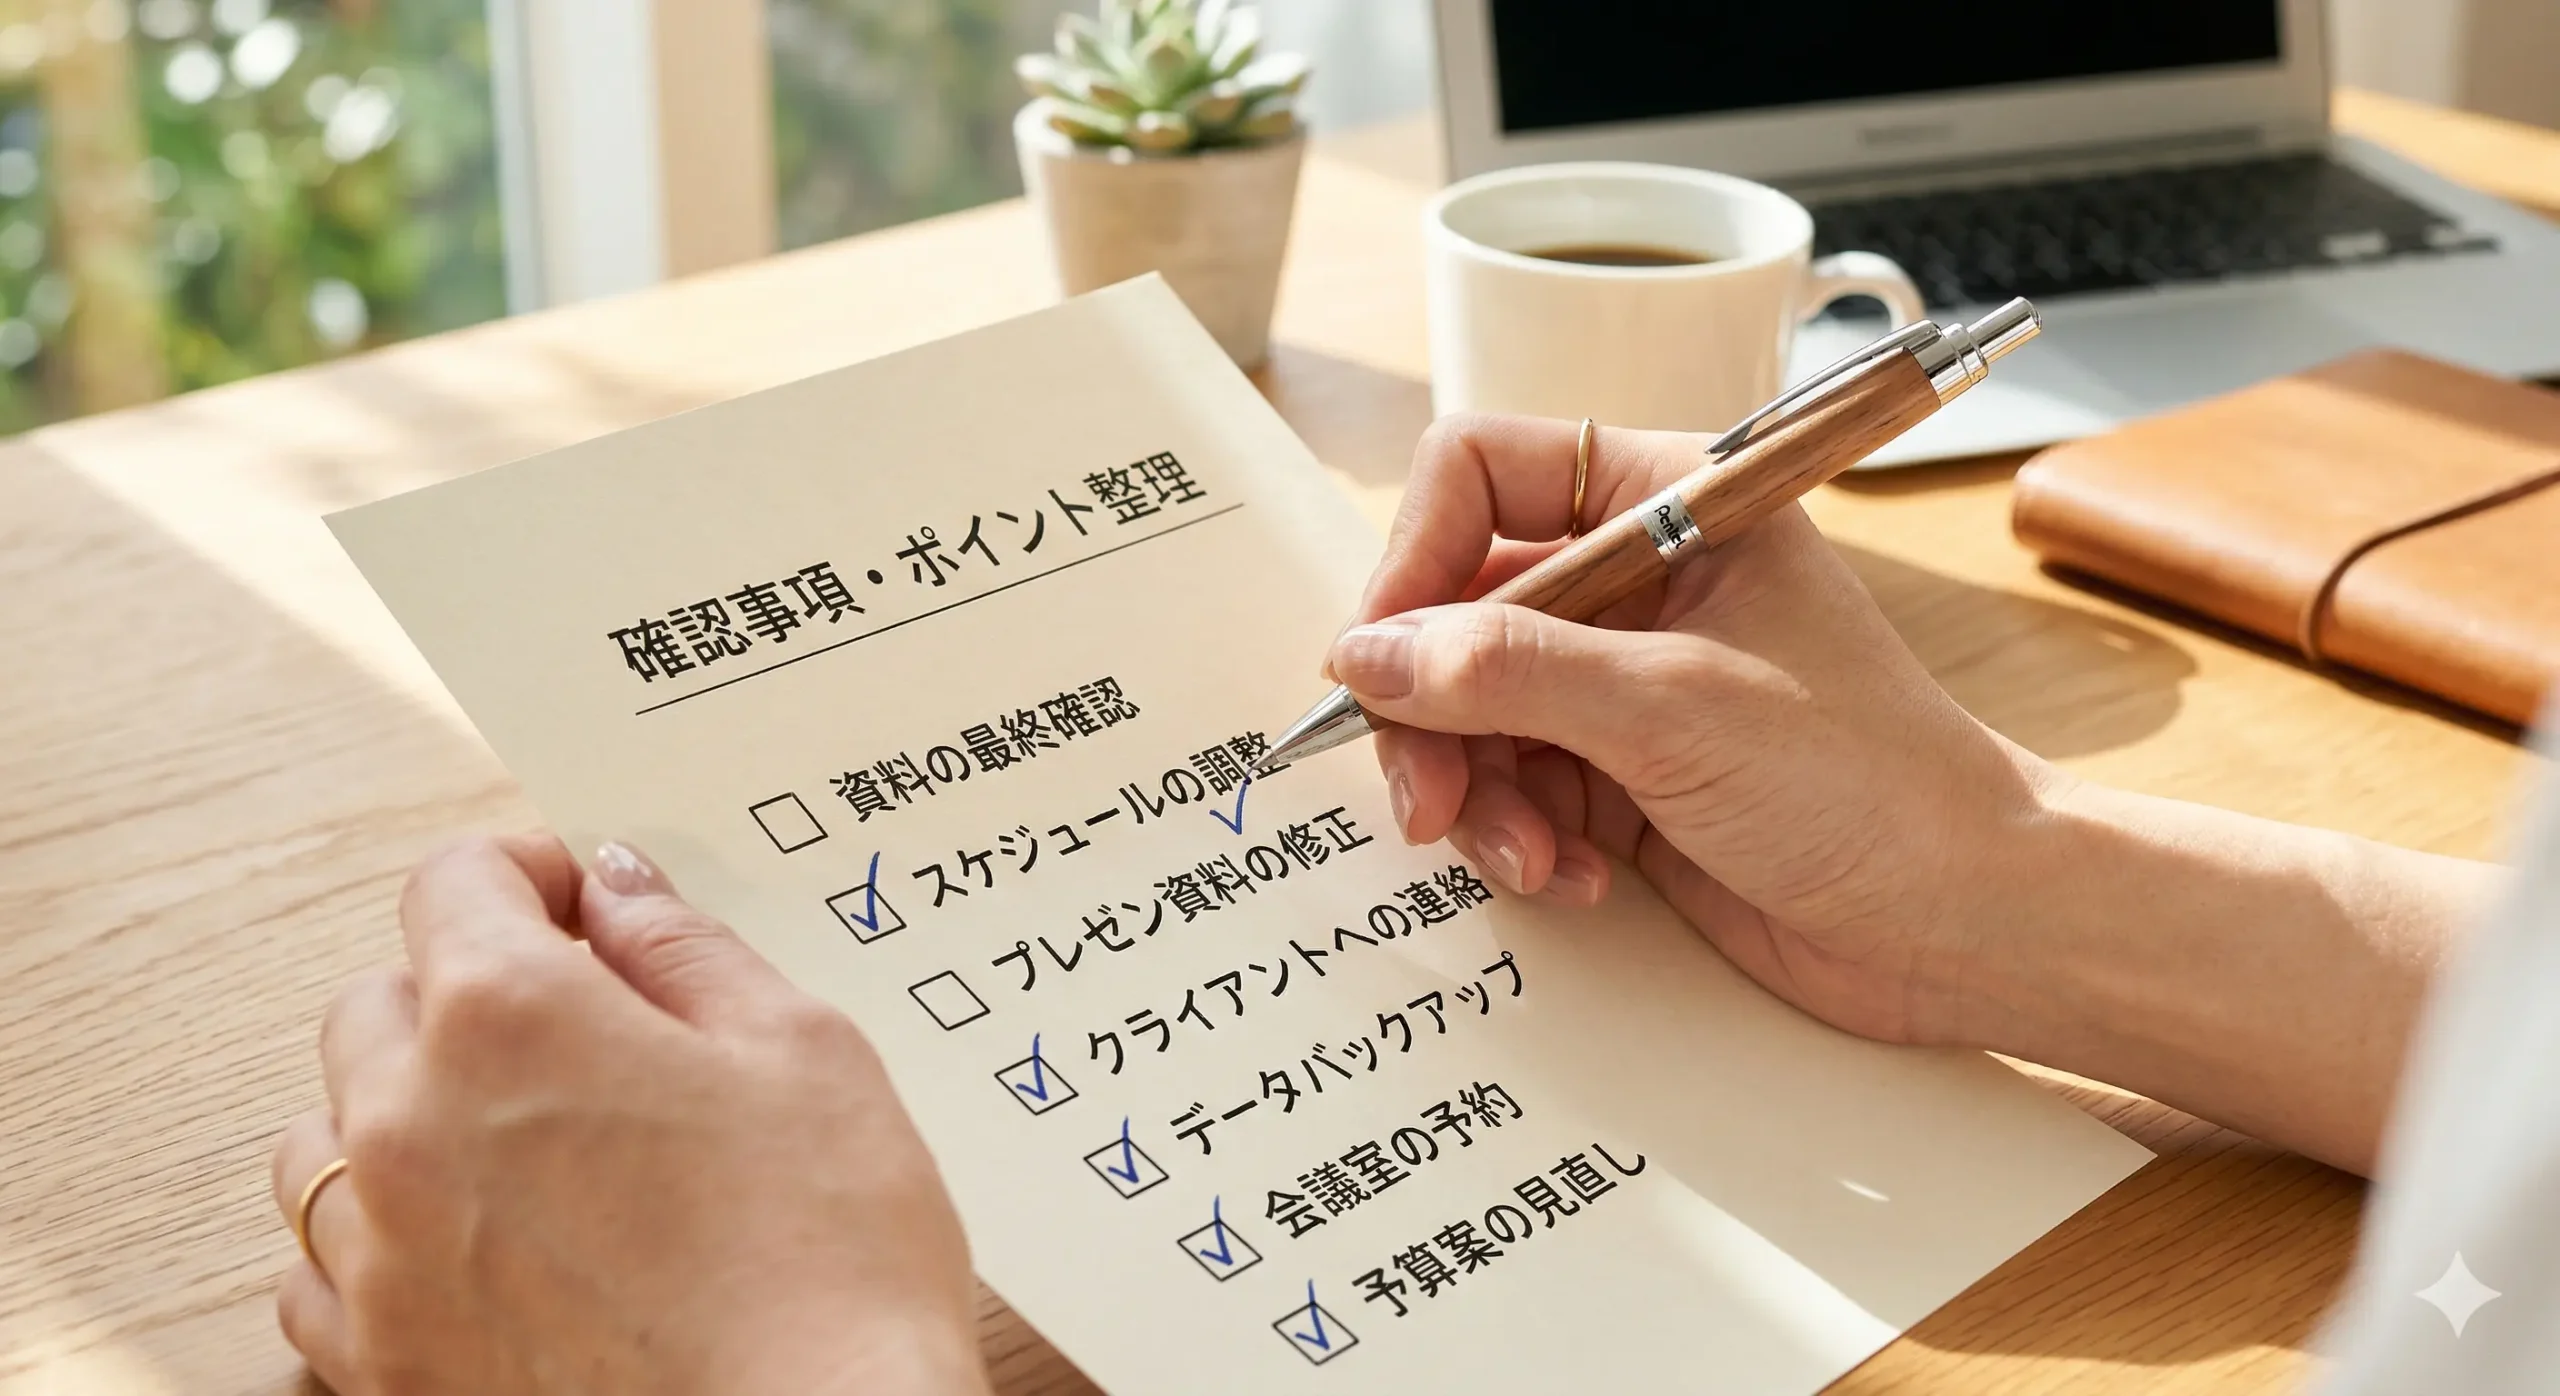 確認事項・ポイント整理
資料の最終確認
スケジュールの調整
プレゼン資料の修正
クライアントへの連絡
データバックアップ
会議室の予約
予算案の見直し
Pentel